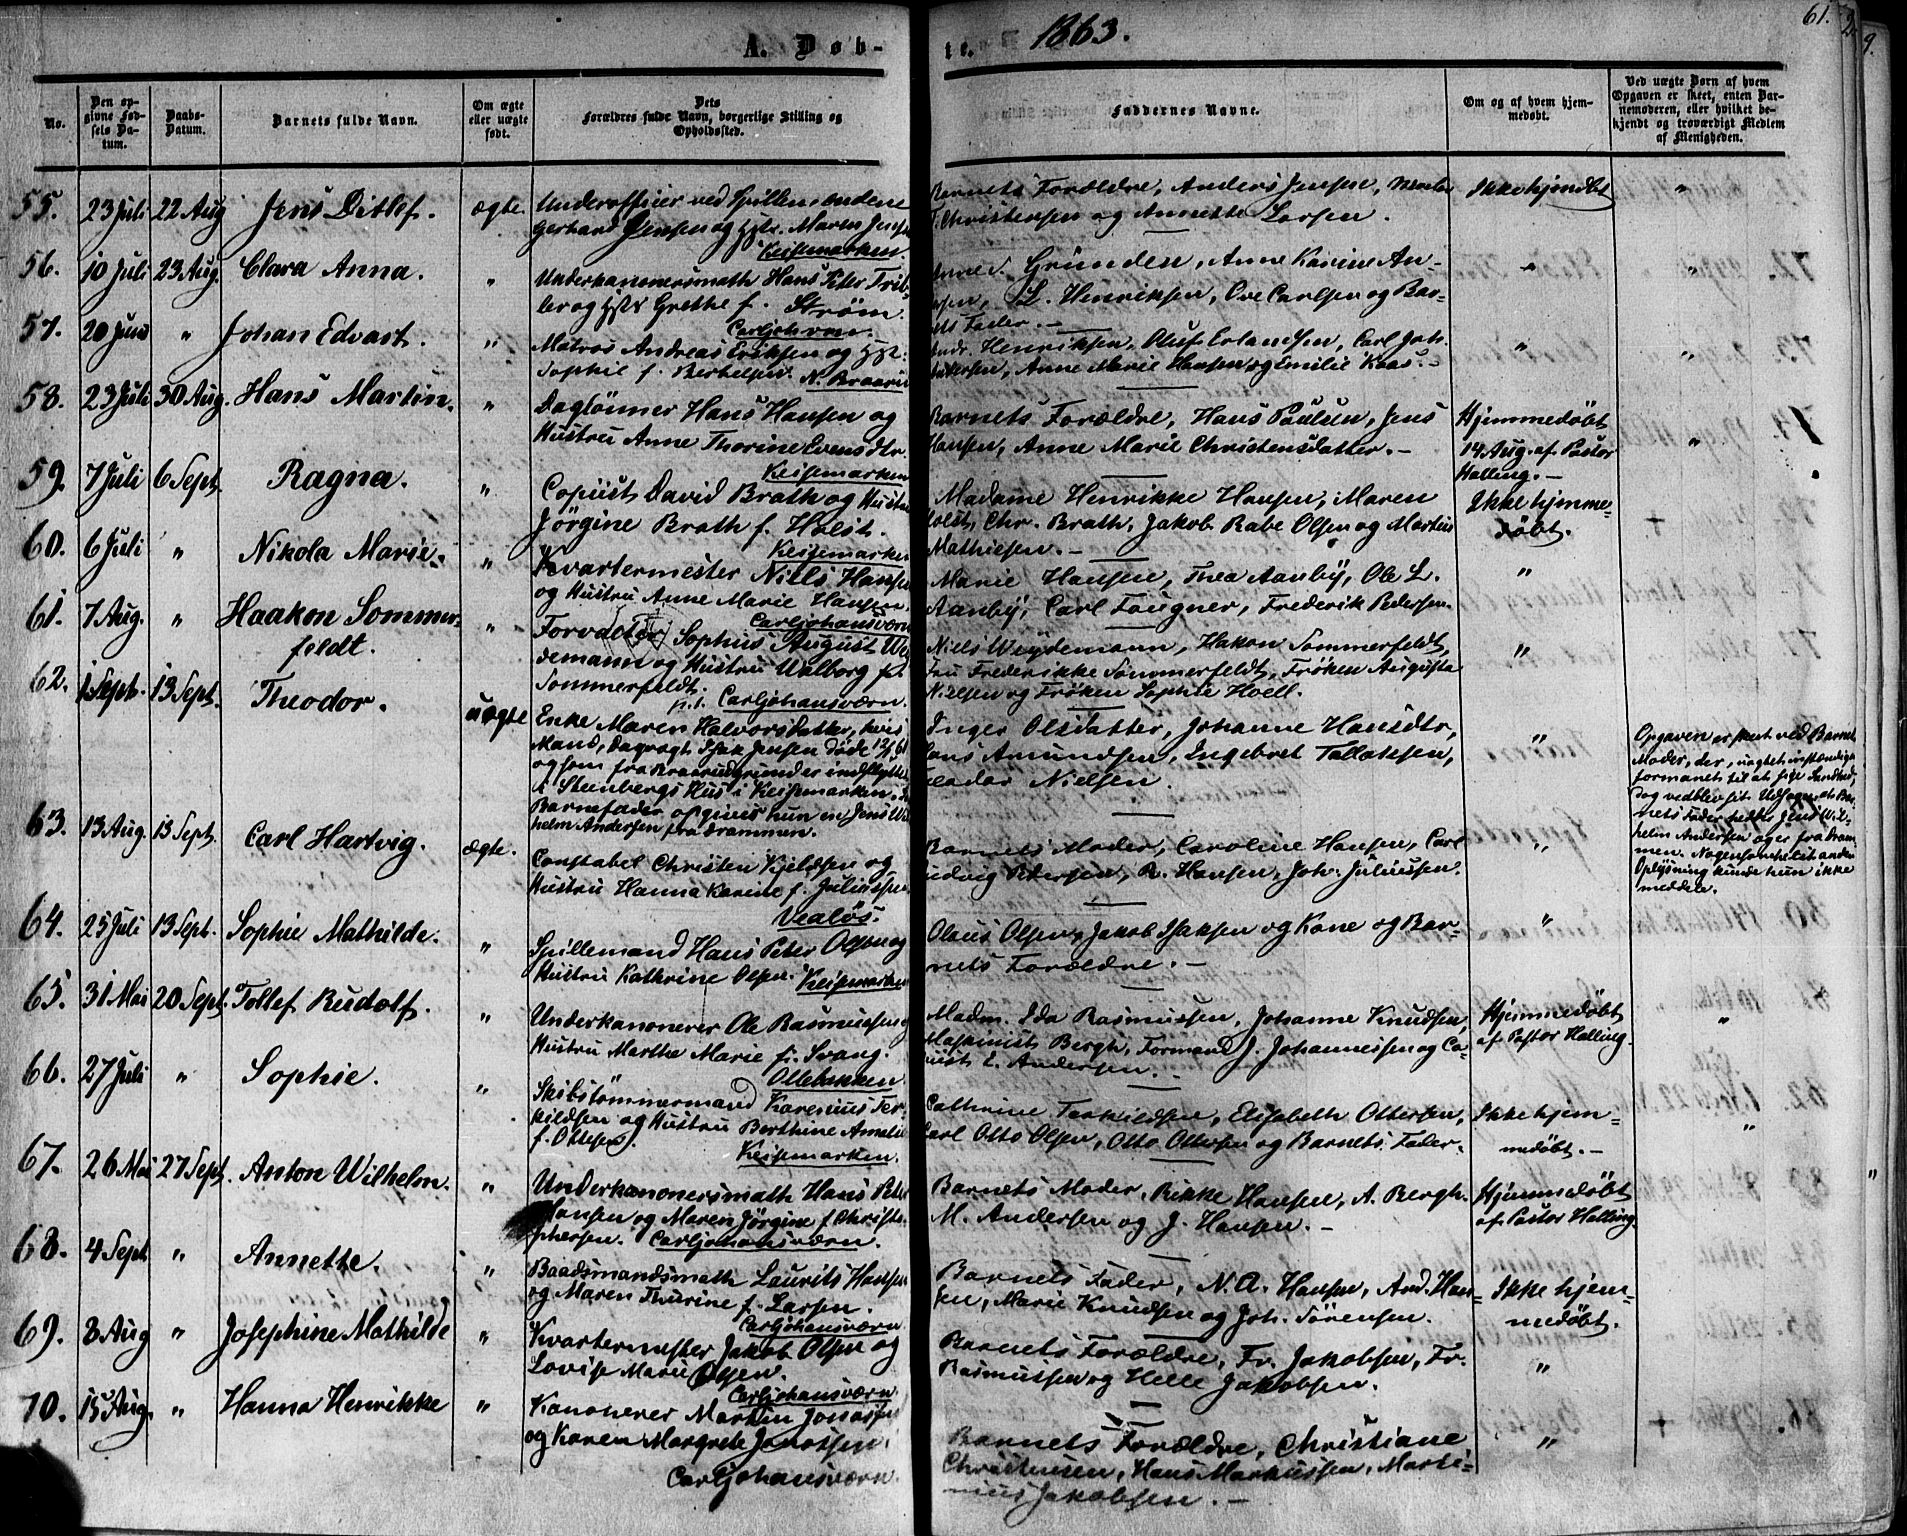 A. Døb-
te.
1863.
61.
No.
Den opgivne Fødsels Datum.
Daabs-Datum.
Barnets fulde Navn.
Om ægte eller uægte født.
Dets Forældres fulde Navn, borgerlige Stilling og Opholdssted.
Faddernes Navne.
Om og af hvem hjemmedøbt.
Ved uægte Børn af hvem Opgaven er skeet, enten Barnemoderen, eller hvilket bekjendt og troværdigt Medlem af Menigheden.
55. 23 Juli 22 Aug Jens Ditlef. ægte.
Underofficier ved Spillemændene
Gerhard Jensen og Hst. Maren Jensen
Keisemarken.
Barnets Forældre, Anders Jensen,
Christensen og Annette Larsen.
Ikke hjemdbt "
56. 10 Juli 23 Aug. Clara Anna. "
Underkanonersmath Hans Peter
og Hst. Grethe f. Strøm.
Carljohsvrn.
Gründen, Anne Karine An-
L. Henriksen, Ove Carlsen og Bar-
nets Fader.
" "
57. 20 Juni " Johan Edvart. "
Matros Andreas Eriksen og Hst.
Sophie f. Berthelsen. N. Braarud
Andr. Henriksen, Oluf Erlandsen, Carl Joh.
Andersen, Anne Marie Hansen og Emilie Kaas.
" "
58. 23 Juli 30 Aug. Hans Martin. "
Daglönner Hans Hansen og
Hustru Anne Thorine Evensdtr.
Keisemarken
Barnets Forældre, Hans Paulsen, Jens
Hansen, Anne Marie Christensdatter.
Hjemmedöbt
14 Aug. af Pastor
Halling. "
59. 7 Juli 6 Sept. Ragna. "
Copiist David Brath og Hustru
Jörgine Brath f. Holst.
Keisemarken
Madame Henrikke Hansen, Maren
Holst, Chr. Brath, Jakob Rabe Olsen og Martin
Mathiesen.
Ikke hjemme-
döbt.
60. 6 Juli " Nikola Marie. "
Kvartermester Niels Hansen
og Hustru Anne Marie Hansen.
Carljohansværn
Marie Hansen, Thea Aanby, Ole L.
Aanby, Carl Fougner, Frederik Pedersen.
"
61. 7 Aug. " Haakon Sommer-
feldt. "
Forvalter Sophus August Wey-
demann og Hustru Valborg f.
Sommerfeldt.
p.t. Carljohansværn.
Niels Weydemann, Hakon Sommerfeldt,
Fru Frederikke Sommerfeldt, Fröken Augusta
Nielsen og Fröken Sophie Hoell.
"
62. 1 Sept. 13 Sept. Theodor. uægte
Enke Maren Halvorsdatter, hvis
Mand, Dagvagt Isak Jensen döde 12/5 61
og som fra Braarudgrunder indflyttet
i Steenbergs Hus i Keisemarken.
Barnefader opgives hun en Jens Wil-
helm Andersen fra Drammen.
Inger Olsdatter, Johanne Hansdtr,
Hans Amundsen, Engebret Tallaksen,
Theodor Nielsen.
"
Opgaven er skeet ved Barnets
Moder, der, uagtet indstændigen
formanet til at sige Sandhed,
dog vedblev sit Udsagn, at Bar-
nets Fader hedder Jens Wil-
helm Andersen og er fra Dram-
men. Nogensomhelst anden
Oplysning kunde hun ikke
meddele.
63. 13 Aug. 13 Sept. Carl Hartvig. ægte.
Constabel Christen Kjeldsen og
Hustru Hanna Karine f. Juliussen
Vealös.
Barnets Moder, Caroline Hansen, Carl
Ludvig Petersen, R. Hansen, Joh. Juliussen.
"
64. 25 Juli 13 Sept. Sophie Mathilde. "
Spillemand Hans Peter Olsen og
Hustru Kathrine Olsen. Keisemarken
Olaus Olsen, Jakob Isaksen og Kone og Bar-
nets Forældre.
"
65. 31 Mai 20 Sept. Tollef Rudolf. "
Underkanonerer Ole Rasmussen og
Hustru Marthe Marie f. Svang.
Ollebakken.
Madm. Ida Rasmussen, Johanne Knudsen,
Maskinist Bergh, Formand J. Johannessen og Co-
piist E. Andersen.
Hjemmedöbt
af Pastor Halling. "
66. 27 Juli " Sophie. "
Skibstömmermand Karenius Ter-
kildsen og Hustru Berthine Amalie
f. Ottesen.
Keisemarken.
Cathrine Terkildsen, Elisabeth Ottersen,
Carl Otto Olsen, Otto Ottersen og Barnets Fader.
Ikke hjem-
medöbt. "
67. 26 Mai 27 Sept. Anton Wilhelm. "
Underkanonersmath Hans Peter
Hansen og Maren Jörgine f. Christo-
phersen. Carljohansværn.
Barnets Moder, Rikke Hansen, A. Bergh.
M. Andersen og J. Hansen.
Hjemmedöbt
af Pastor Halling.
68. 4 Sept. " Annette. "
Baadsmandsmath Laurits Hansen
og Maren Thurine f. Larsen.
Carljohansværn
Barnets Fader, N. A. Hansen, And. Han-
sen, Marie Knudsen og Joh. Sörensen.
Ikke hjem-
medöbt.
69. 8 Aug " Josephine Mathilde "
Kvartermester Jakob Olsen og
Lovise Marie Olsen.
Carljohansværn
Barnets Forældre, Fr. Jakobsen, Fr.
Rasmussen og Helle Jakobsen.
"
70. 15 Aug. " Hanna Henrikke "
Kanonerer Martin Jonassen
og Karen Margrete Jonassen.
Carljohansværn.
Barnets Forældre, Christiane
Christensen, Hans Markussen, Marti-
nius Jakobsen.
"